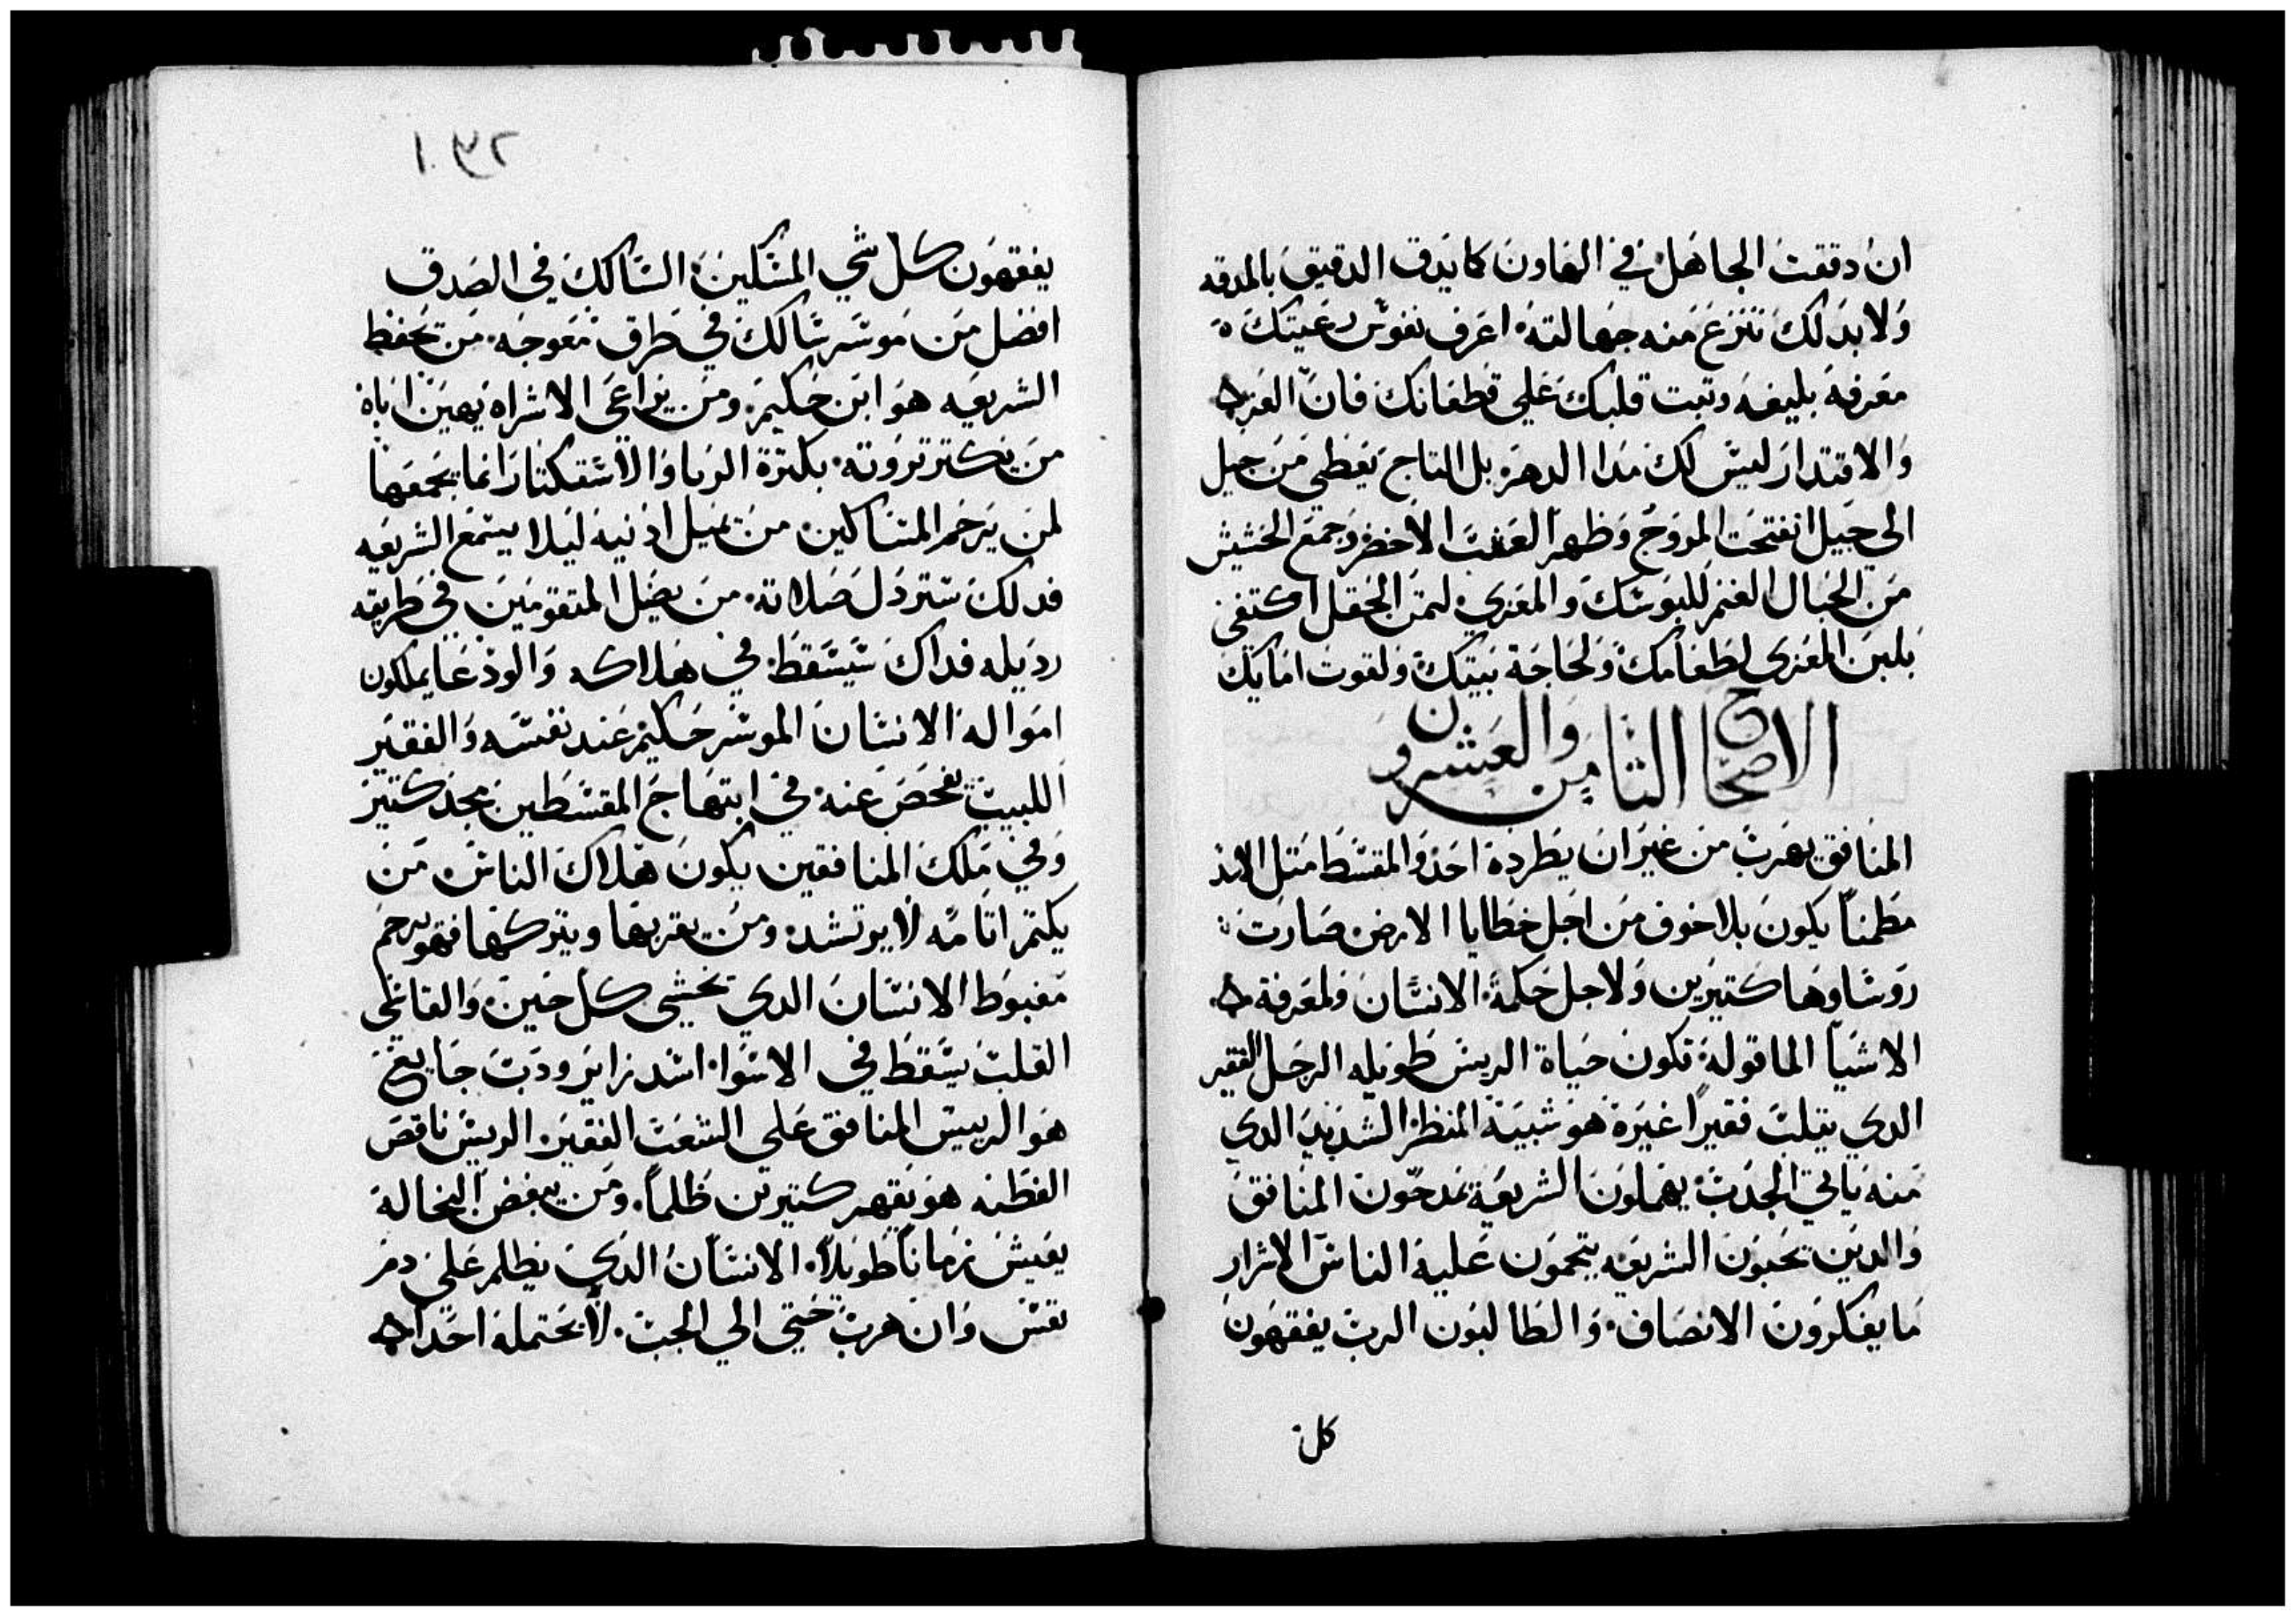 ان دققت الجاهل في الهاون كما يدق الدقيق بالمدقه
ولا بدلك تنزع منه جهالته اعرف نفوس رعيتك
معرفة بليغه وتبت قلبك علي قطعانك فان العز
والاقتدار ليس لك مدا الدهر بل التاج يعطي من جيل
الي جيل انفتحت المروج وظهر العشب الاخضر وجمع الحشيش
من الجبال الغنم للبوسك والمعزي لتمن الحقل اكتفي
بلبن المعزى لطعامك ولحاجة بيتك ولقوت امايك
الاصحاح الثامن والعشرون
المنافق يهرب من غير ان يطرده احد والمقسط متل الاسد
مطمنا يكون بلا خوف من اجل خطايا الارض صارت
روساوها كتيرين ولاجل حكمة الانسان ولمعرفة
الاشيا الماقوله تكون حياة الريس طويله الرجل الفقير
الدي يتلب فقيرا غيره هو شبيه المنظر الشديد الدي
منه ياتي الجدب يهملون الشريعه يمدحون المنافق
والدين يحبون الشريعه يتحمون عليه الناس الاشرار
ما يفكرون الانصاف والطالبون الرب يفقهون
كل
٢٣١
يفقهون كل شي المسكين السالك في الصدق
افضل من موسر سالك في طرق معوجه من يحفظ
الشريعه هو ابن حكيم ومن يراعي الاشراه يهين اباه
من يكتر تروته بكترة الربا والاستكتار انما يجمعها
لمن يرحم المساكين من يميل ادنيه ليلا يستمع الشريعه
فدلك ستردل صلاته من يضل المتقومين في طريقه
رديله فداك سيسقط في هلاكه والودعا يملكون
امواله الانسان الموسر حكيم عند نفسه والفقير
اللبيب يفحص عنه في ابتهاج المقسطين مجد كتير
وفي ملك المنافقين يكون هلاك الناس من
يكتم اتامه لا يرتشد ومن يقر بها ويتركها فهو يرحم
مغبوط الانسان الدي يخشي كل حين والقاسي
القلب يسقط في الاسوا اسد زاير ودب جايع
هو الرييس المنافق علي الشعب الفقير الريس ناقص
الفطنه هو يقهر كتيرين ظلما ومن يبغض البخالة
يعيش زمانا طويلا الانسان الدي يظلم علي دم
نفس وان هرب حتي الي الجب لا يحتمله احدا